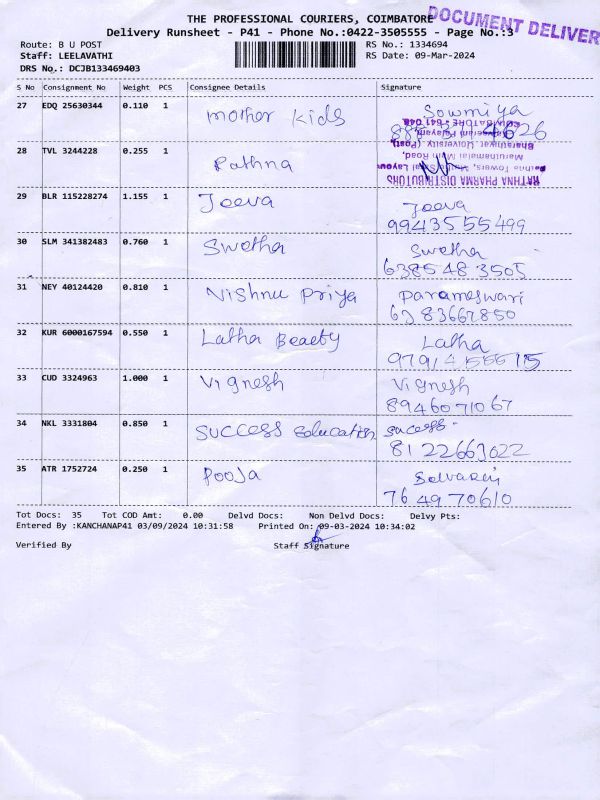 THE PROFESSIONAL COURIERS, COIMBATORE
DOCUMENT DELIVER
Delivery Runsheet - P41 - Phone No.:0422-3505555 - Page No.:3
Route: B U POST
RS No.: 1334694
Staff: LEELAVATHI
RS Date: 09-Mar-2024
DRS No.: DCJB133469403
S No Consignment No Weight PCS Consignee Details Signature
27 EDQ 25630344 0.110 1 mother kids Sowmiya
28 TVL 3244228 0.255 1 Rathna
RATHNA PHARMA DISTRIBUTORS
29 BLR 115228274 1.155 1 Jeeva Jeeva
9943555499
30 SLM 341382483 0.760 1 Swetha Swetha
6385483505
31 NEY 40124420 0.810 1 Vishnu Priya Parameswari
6383667850
32 KUR 6000167594 0.550 1 Latha Beauty Latha
33 CUD 3324963 1.000 1 Vignesh Vignesh
8946071067
34 NKL 3331804 0.850 1 success education sucess
8122663022
35 ATR 1752724 0.250 1 Pooja
7649706 10
Tot Docs: 35 Tot COD Amt: 0.00 Delvd Docs: Non Delvd Docs: Delvy Pts:
Entered By :KANCHANAP41 03/09/2024 10:31:58 Printed On: 09-03-2024 10:34:02
Verified By Staff Signature